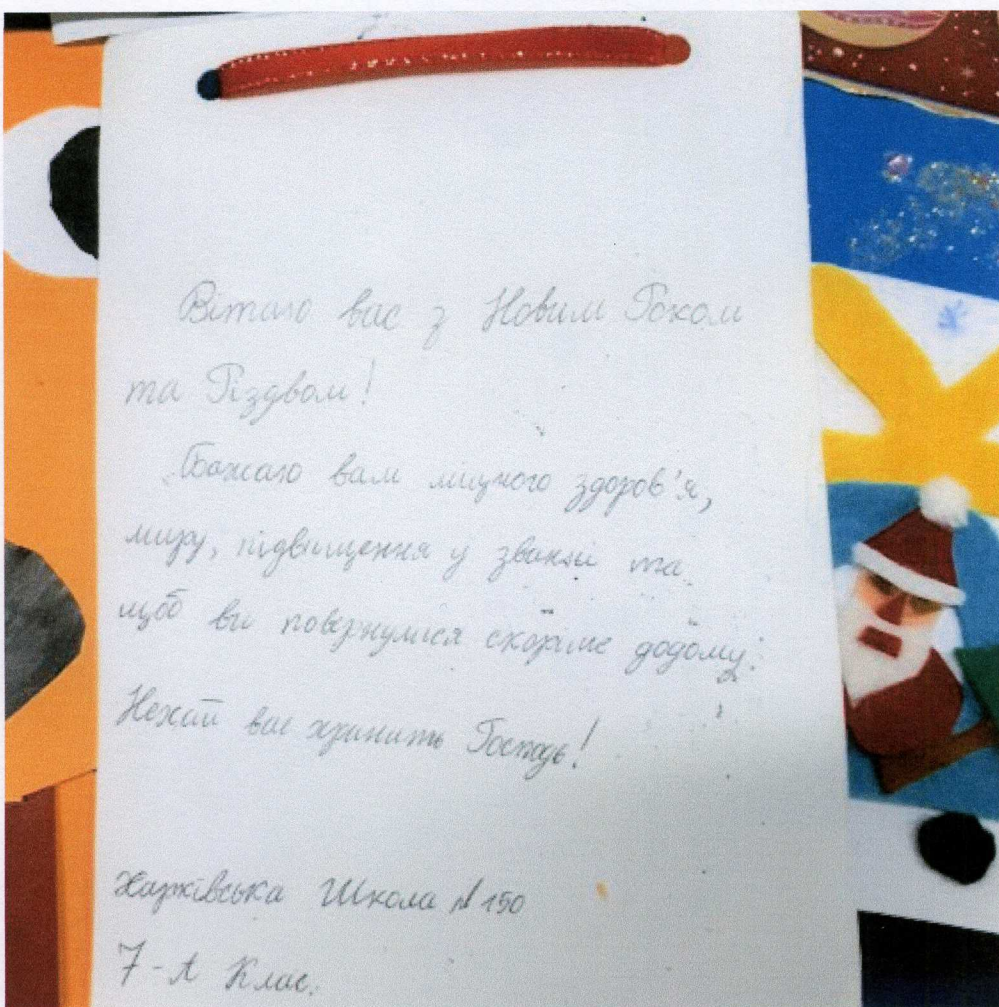 Вітаю вас з Новим Роком
та Різдвом!
Бажаю вам міцного здоров'я,
миру, підвищення у званні та
щоб ви повернулися скоріше додому.
Нехай вас хранить Господь!
Харківська Школа №150
7-А Клас.